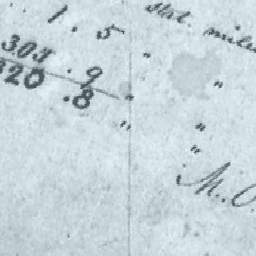 1.5 Stat. miles
303.9 " "
320.8 " "
"
M.O.